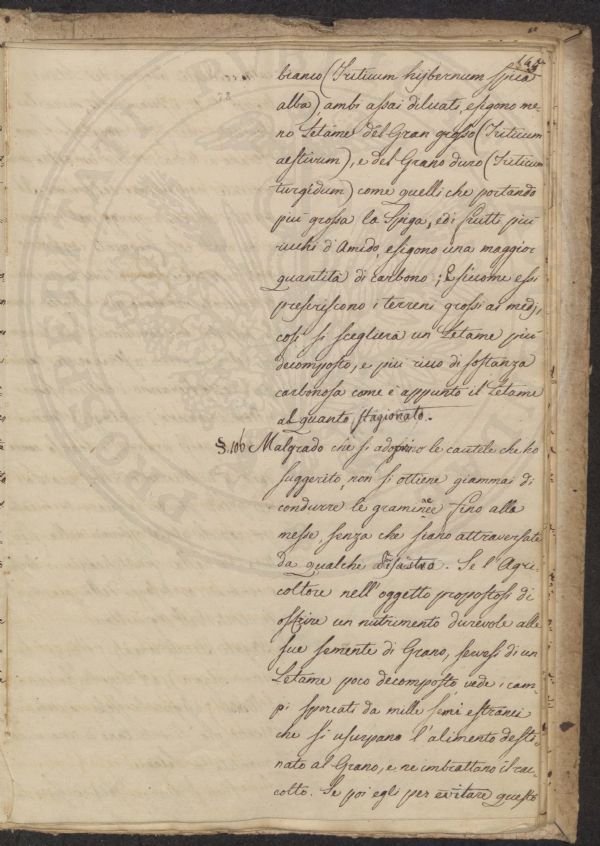 144
bianco (Triticum hijbernum spica
alba) ambi assai diluati, esigono me-
no Letame del Gran grosso (Triticum
aestivum), e del Grano duro (Triticum
turgidum) come quelli che portando
più grossa la Spiga, ed i frutti più
ricchi d'Amido, esigono una maggior
quantità di carbono; E siccome essi
preferiscono i terreni grossi ai medj,
così si sceglierà un Letame più
decomposto, e più ricco di sostanza
carbonosa come è appunto il Letame
al quanto stagionato.
§.106 Malgrado che si adoprino le cautele che ho
suggerito, non si ottiene giammai di
condurre le graminee fino alla
messe, senza che siano attraversate
da qualche disastro. Se l'Agri-
coltore nell'oggetto propostosi di
offrire un nutrimento durevole alle
sue semente di Grano, servesi di un
Letame poco decomposto, vede i cam-
pi sporcati da mille semi estranei
che si usurpano l'alimento desti-
nato al Grano, e ne imbrattano il rac-
colto. Se poi egli per evitare questo